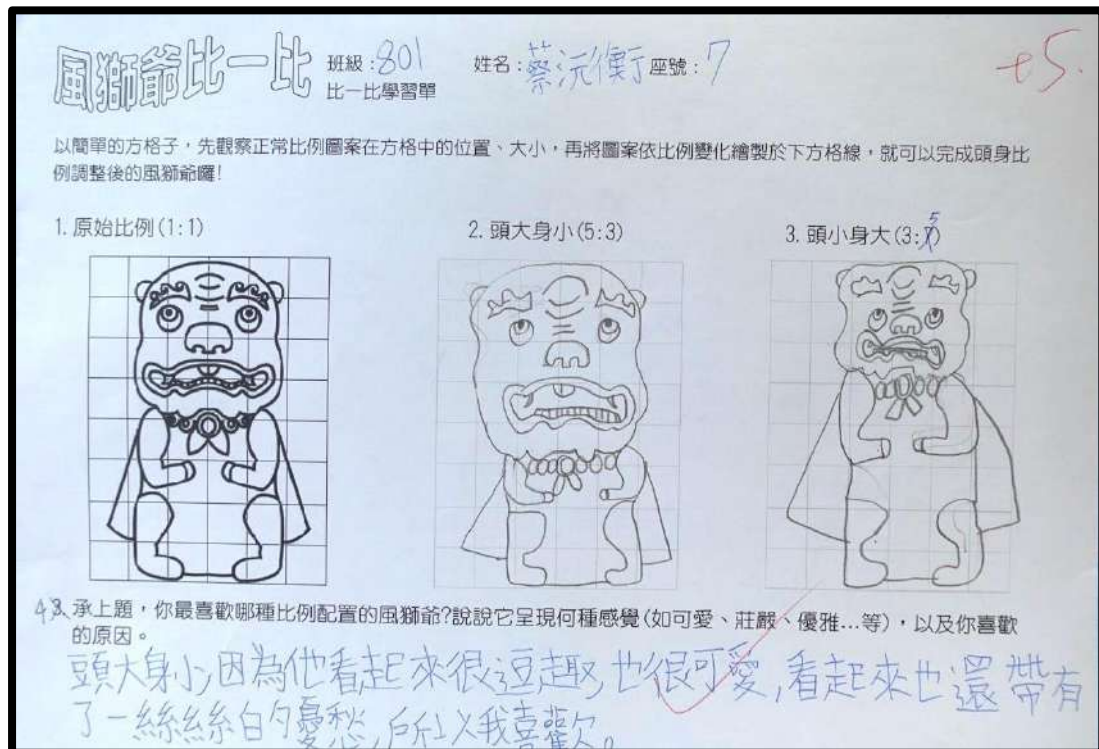 風獅爺比一比 班級:801 姓名:蔡沅衡 座號:7 +5.
比一比學習單
以簡單的方格子，先觀察正常比例圖案在方格中的位置、大小，再將圖案依比例變化繪製於下方格線，就可以完成頭身比
例調整後的風獅爺囉!
1. 原始比例(1:1) 2. 頭大身小(5:3) 3. 頭小身大(3:5)
4. 承上題，你最喜歡哪種比例配置的風獅爺?說說它呈現何種感覺(如可愛、莊嚴、優雅...等)，以及你喜歡
的原因。
頭大身小,因為他看起來很逗趣,也很可愛,看起來也還帶有
了一絲絲的憂愁,所以我喜歡。